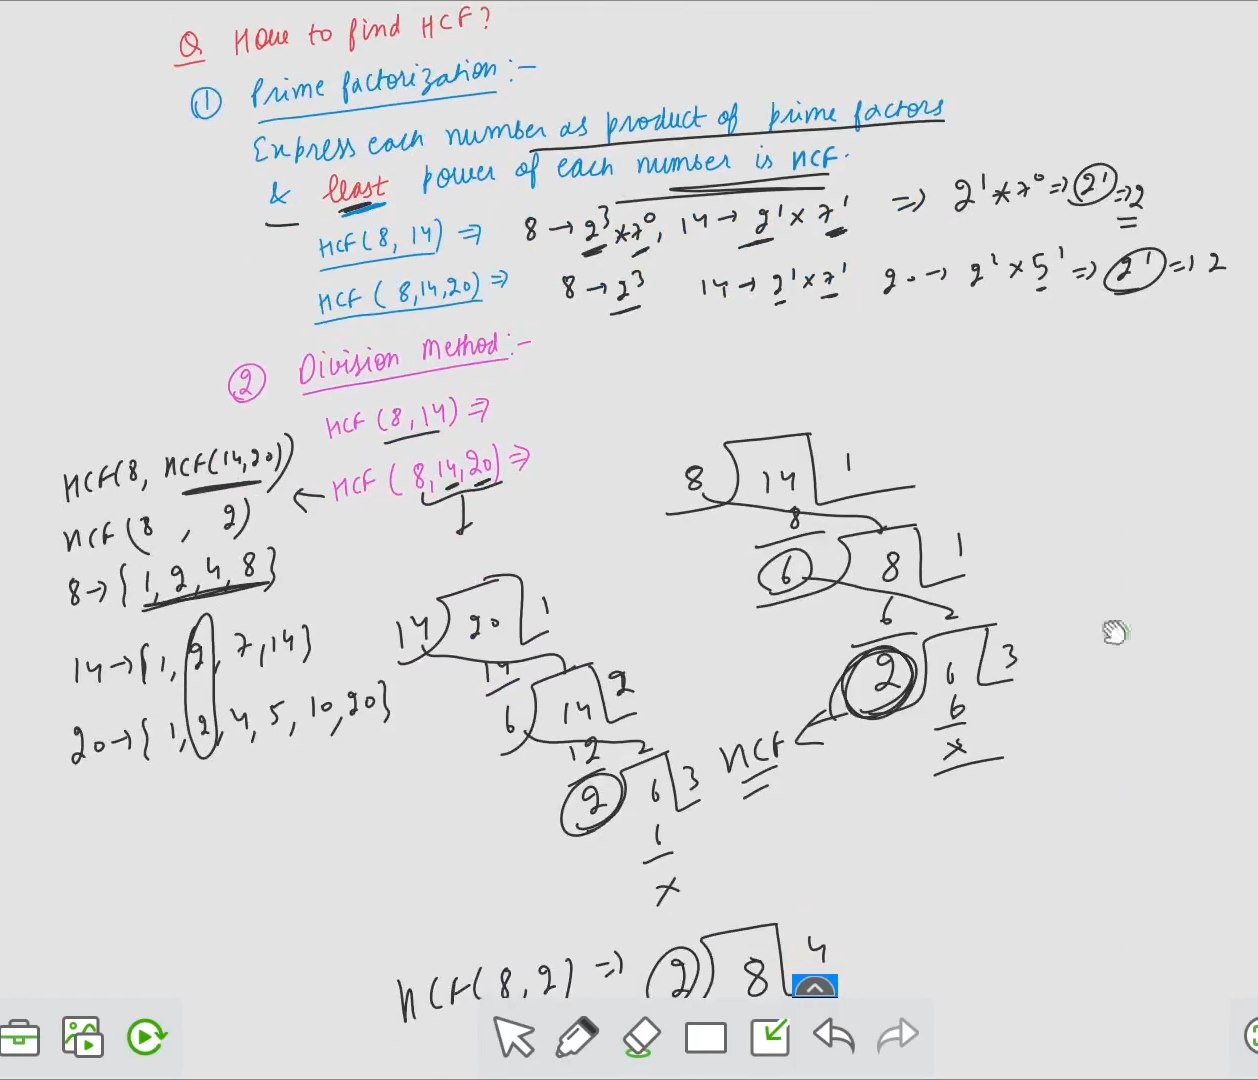 Q How to find HCF?
① Prime factorization :-
Express each number as product of prime factors
& least power of each number is HCF.
HCF(8, 14) ⇒ 8 → 2³ * 7⁰, 14 → 2¹ × 7¹ ⇒ 2¹ * 7⁰ ⇒ 2¹ ⇒ 2
HCF(8,14,20) ⇒ 8 → 2³ 14 → 2¹ × 7¹ 20 → 2¹ × 5¹ ⇒ 2¹ ⇒ 2
② Division Method :-
HCF (8,14) ⇒
HCF (8,14,20) ⇒
HCF(8, HCF(14,20))
HCF(8, 2)
8 → {1, 2, 4, 8}
14 → {1, 2, 7, 14}
20 → {1, 2, 4, 5, 10, 20}
14) 20 1
14
6) 14 2
12
2) 6 3
x
8) 14 1
8
6) 8 1
6
2) 6 3
6
x
HCF
HCF(8,2) ⇒ 2) 8 4